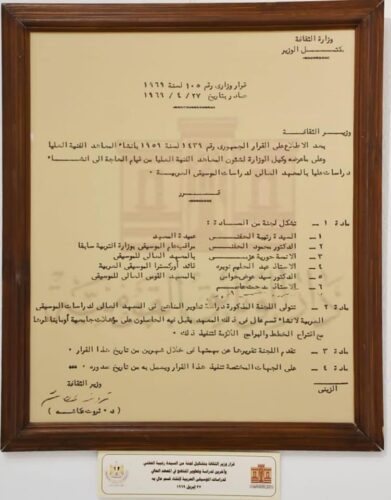 وزارة الثقافة
مكتب الوزير
قرار وزارى رقم ١٠٥ لسنة ١٩٦٩
صادر بتاريخ ٢٧ / ٤ / ١٩٦٩
وزير الثقافة
بعد الاطلاع على القرار الجمهورى رقم ١٤٣٩ لسنة ١٩٥٩ بانشاء المعاهد الفنية العليا
وعلى ماعرضه وكيل الوزارة لشئون المعاهد الفنية العليا من قيام الحاجة الى انشاء
دراسات عليا بالمعهد العالى لدراسات الموسيقى العربية
قرر
مادة ١ – تشكل لجنة من السادة :
١ – السيدة رتيبة الحفنى عميدة المعهد
٢ – الدكتور محمود الحفنى مراقب عام الموسيقى بوزارة التربية سابقا
٣ – الانسة حورية عزمى بالمعهد العالى للموسيقى
٤ – الاستاذ عبد الحليم نويره قائد أوركسترا الموسيقى العربية
٥ – الدكتور سيد عوض حواس بالمعهد القومى العالى للموسيقى
٦ – الاستاذ مدحت عاصم
مادة ٢ – تتولى اللجنة المذكورة دراسة تطوير المناهج فى المعهد العالى لدراسات الموسيقى
العربية لانشاء قسم عال فى ذلك المعهد يقبل فيه الحاصلون على مؤهلات جامعية أومايعادلها
مع اقتراح الخطط والبرامج اللازمة لتنفيذ ذلك
مادة ٣ – تقدم اللجنة تقريرها عن مهمتها فى خلال شهرين من تاريخ هذا القرار
مادة ٤ – على الجهات المختصة تنفيذ هذا القرار ويعمل به من تاريخ صدوره
وزير الثقافة
الزينى
( د . ثروت عكاشه )
قرار وزير الثقافة بتشكيل لجنة من السيدة رتيبة الحفني
وآخرين لدراسة وتطوير المناهج في المعهد العالي
لدراسات الموسيقى العربية لإنشاء قسم عال به
٢٧ إبريل ١٩٦٩